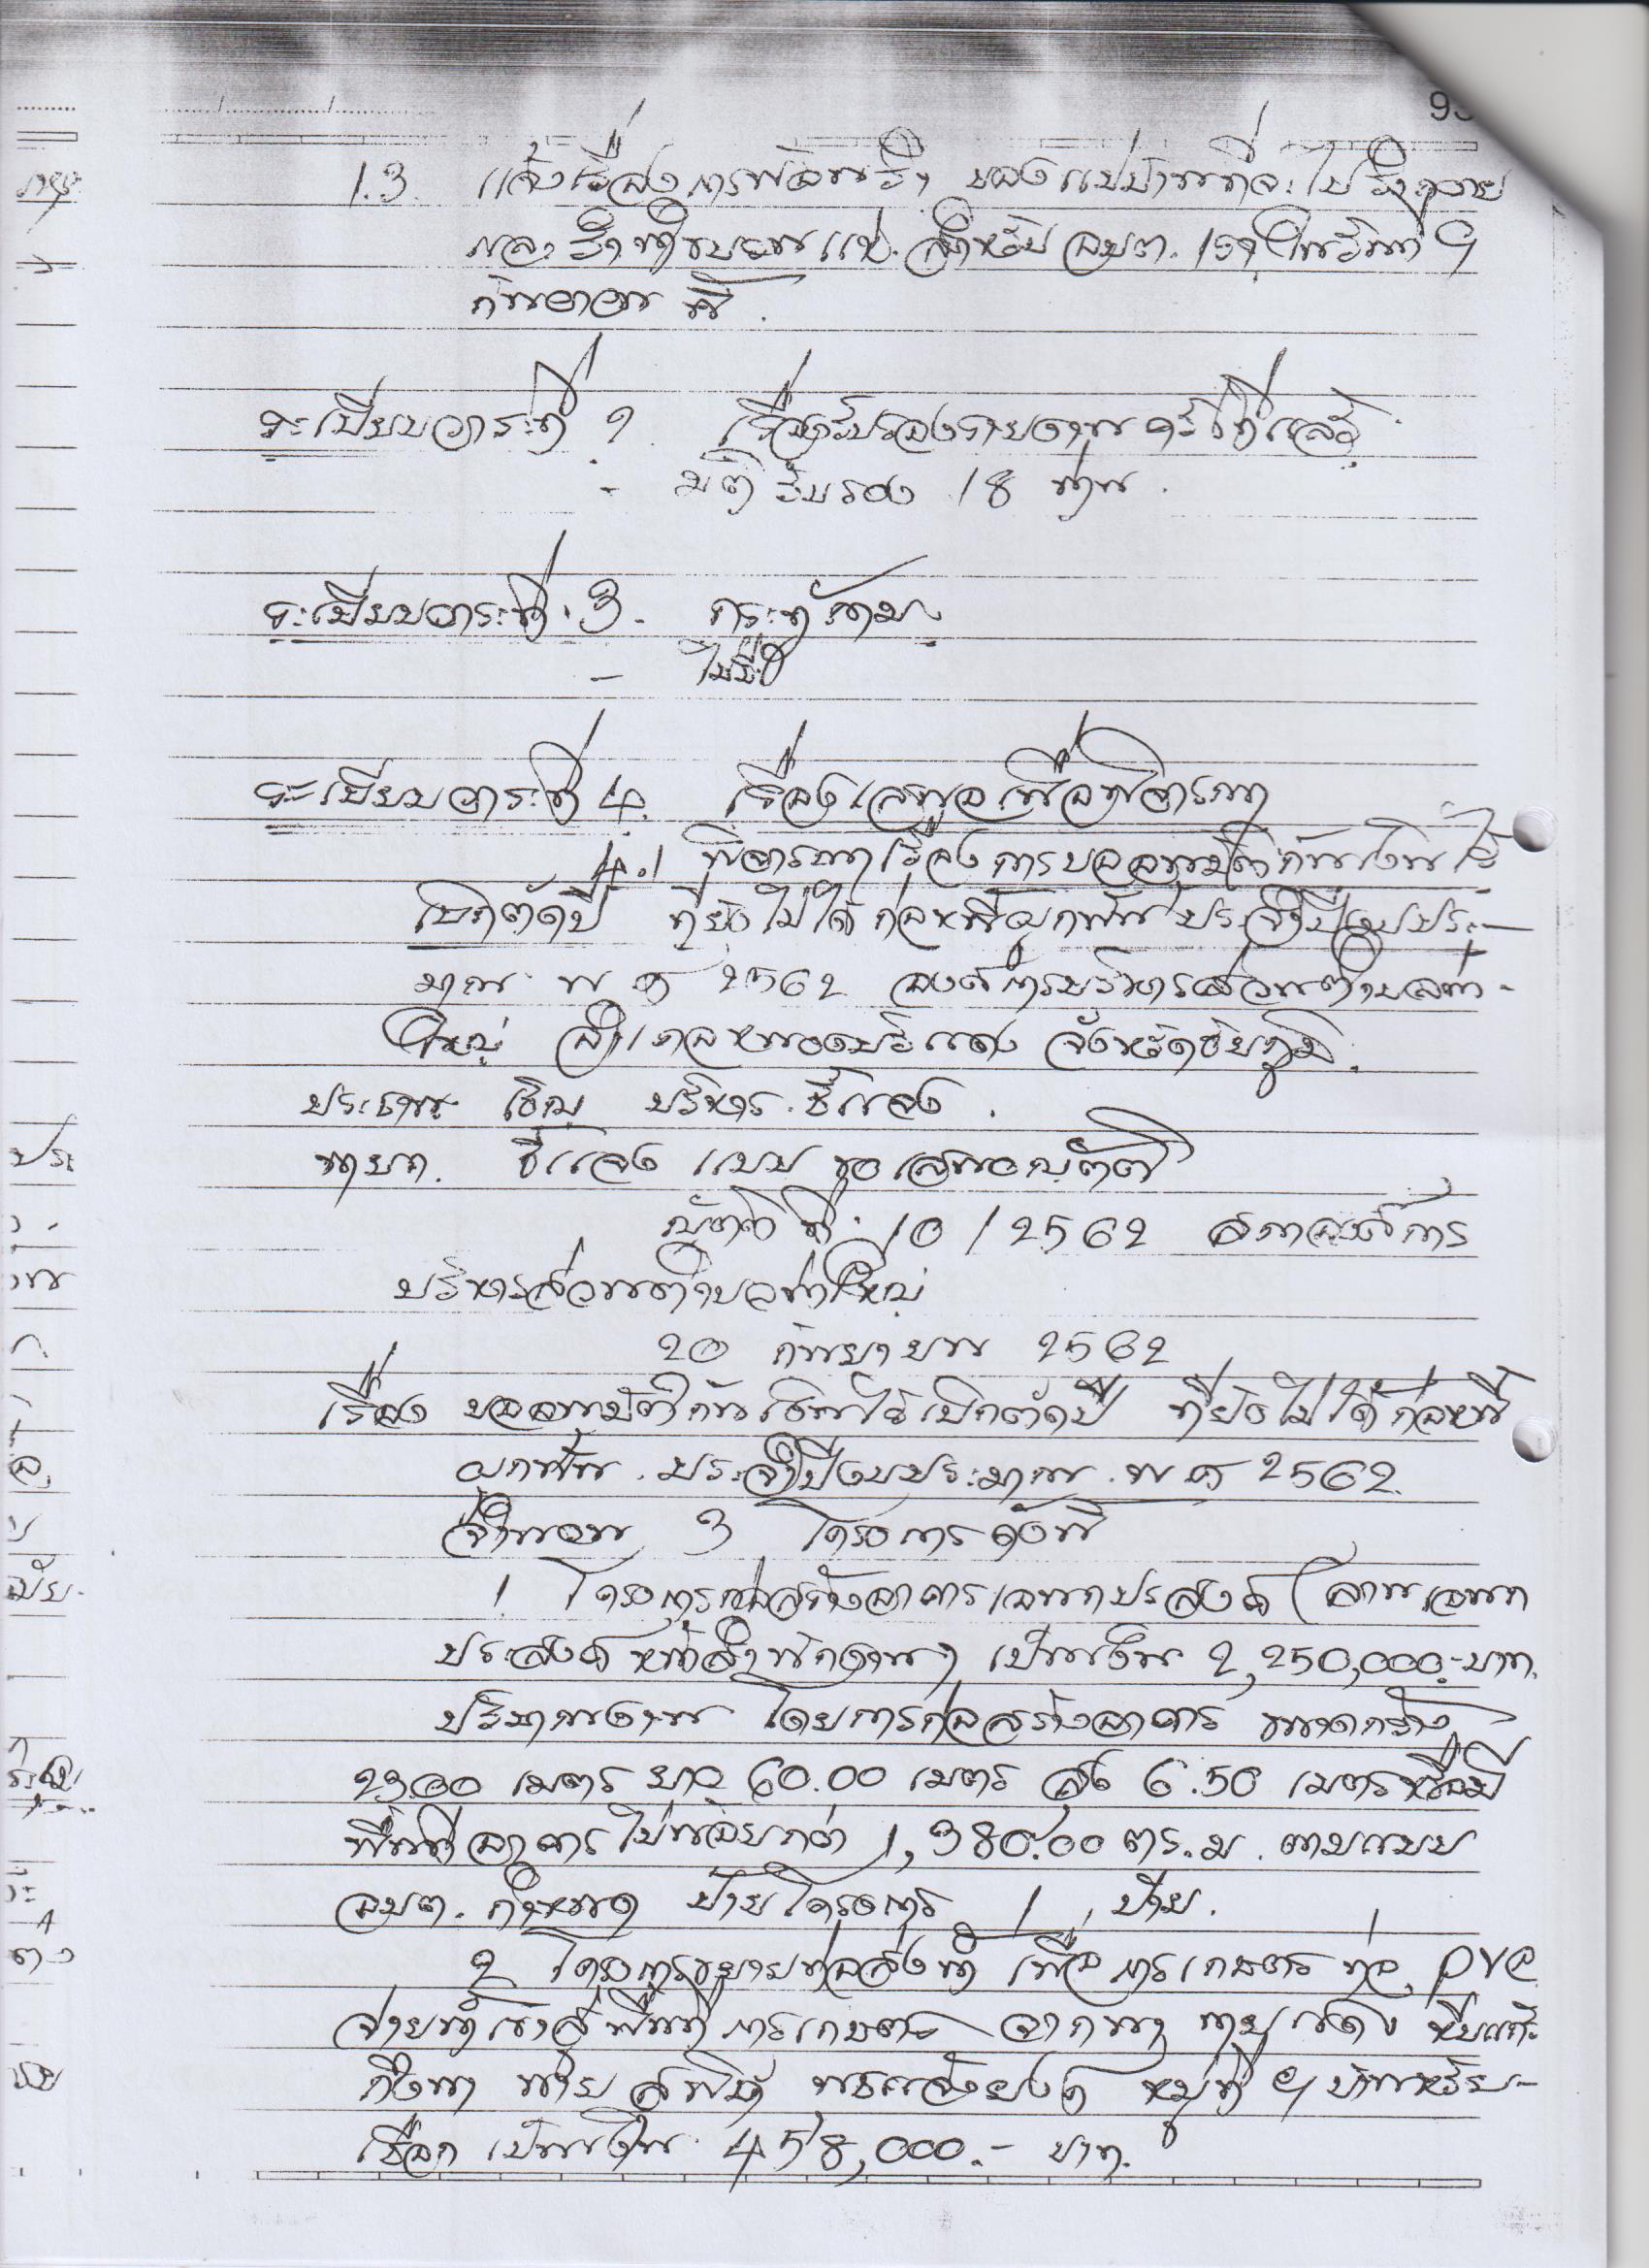 93
1.3. แจ้งเรื่อง การซ้อมรำ ของแม่บ้านที่จะไปรำถวาย
และรำที่ขบวนแห่ สำหรับ อบต. เราในวันที่ ๆ
กันยายน นี้.
ระเบียบวาระที่ 2. เรื่องรับรองรายงานครั้งที่แล้ว
- มติ รับรอง 18 ท่าน.
ระเบียบวาระที่ 3. กระทู้ถาม
- ไม่มี
ระเบียบวาระที่ 4. เรื่องเสนอเพื่อพิจารณา
4.1 พิจารณาเรื่อง การขออนุมัติกันเงินไว้
เบิกตัดปี ที่ยังไม่ได้ก่อหนี้ผูกพัน ประจำปีงบประ-
มาณ พ.ศ 2562 องค์การบริหารส่วนตำบลท่า-
ใหญ่ อำเภอหนองบัวแดง จังหวัดชัยภูมิ.
ประธาน เชิญ บริหาร ชี้แจง.
นายก. ชี้แจง แบบ ขอเสนอญัตติ
ญัตติ ที่ 10 / 2562 สภาองค์การ
บริหารส่วนตำบลท่าใหญ่
20 กันยายน 2562
เรื่อง ขออนุมัติกันเงินไว้เบิกตัดปี ที่ยังไม่ได้ก่อหนี้
ผูกพัน. ประจำปีงบประมาณ. พ.ศ 2562.
จำนวน 3 โครงการ ดังนี้
1. โครงการก่อสร้างอาคารเอนกประสงค์ (ลานเอนก
ประสงค์ หน้าสำนักงานฯ เป็นเงิน 2,250,000.-บาท.
ปริมาณงาน โดยการก่อสร้างอาคาร ขนาดกว้าง
23.00 เมตร ยาว 60.00 เมตร สูง 6.50 เมตรหรือมี
พื้นที่อาคารไม่น้อยกว่า 1,380.00 ตร.ม. ตามแบบ
อบต. กำหนด ป้ายโครงการ 1 ป้าย.
2 โครงการขยายท่อส่งน้ำ เพื่อการเกษตร ท่อ PVC
จ่ายน้ำเข้าสู่พื้นที่การเกษตร จากนา นาย
ถึงนา นาย หมู่ที่ บ้านห้วย-
เป็นเงิน 458,000.- บาท.